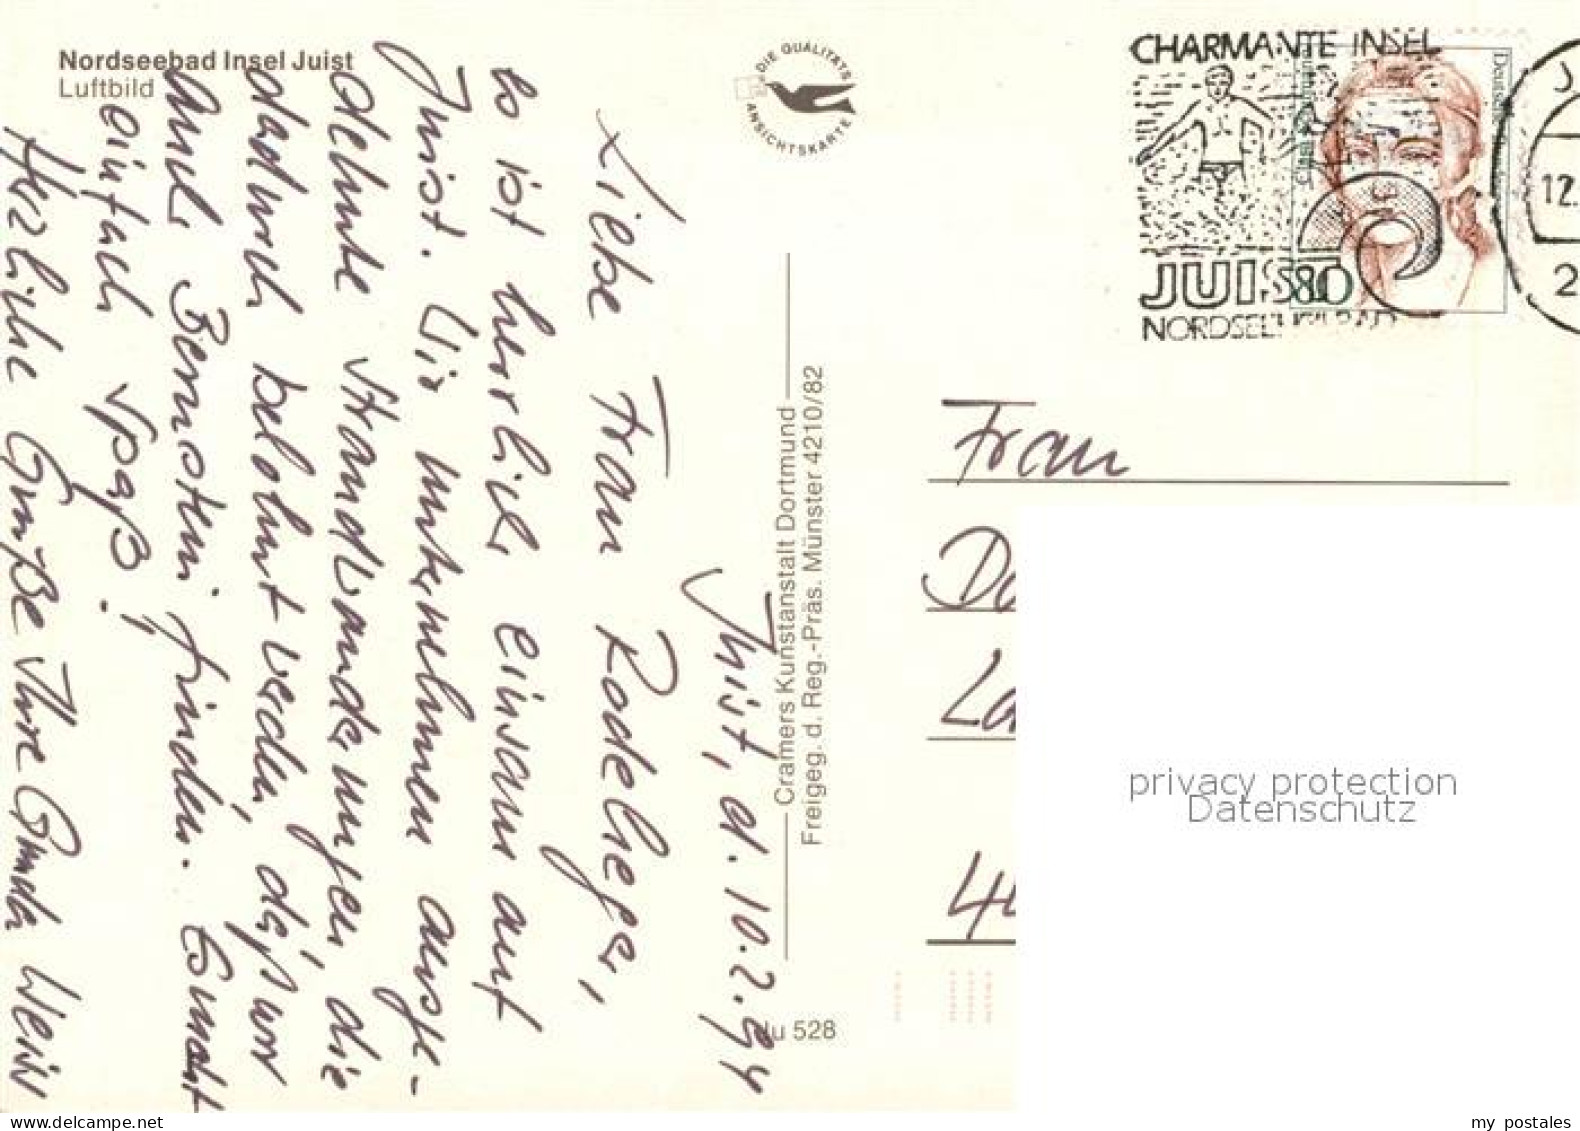 Nordseebad Insel Juist
Luftbild
DIE QUALITÄTS
ANSICHTSKARTE
CHARMANTE INSEL
JUIST
NORDSEEHEILBAD
80
12.
2
Juist, d. 10.2.94
Liebe Frau
es ist herrlich einsam auf
Juist. Wir unternehmen ausge-
dehnte Strandwanderungen, die
dadurch belohnt werden, daß wir
auch Bernstein finden. Es macht
einfach Spaß!
Herzliche Grüße Ihre
Cramers Kunstanstalt Dortmund
Freigeg. d. Reg.-Präs. Münster 4210/82
Ju 528
Frau
privacy protection
Datenschutz
my postales